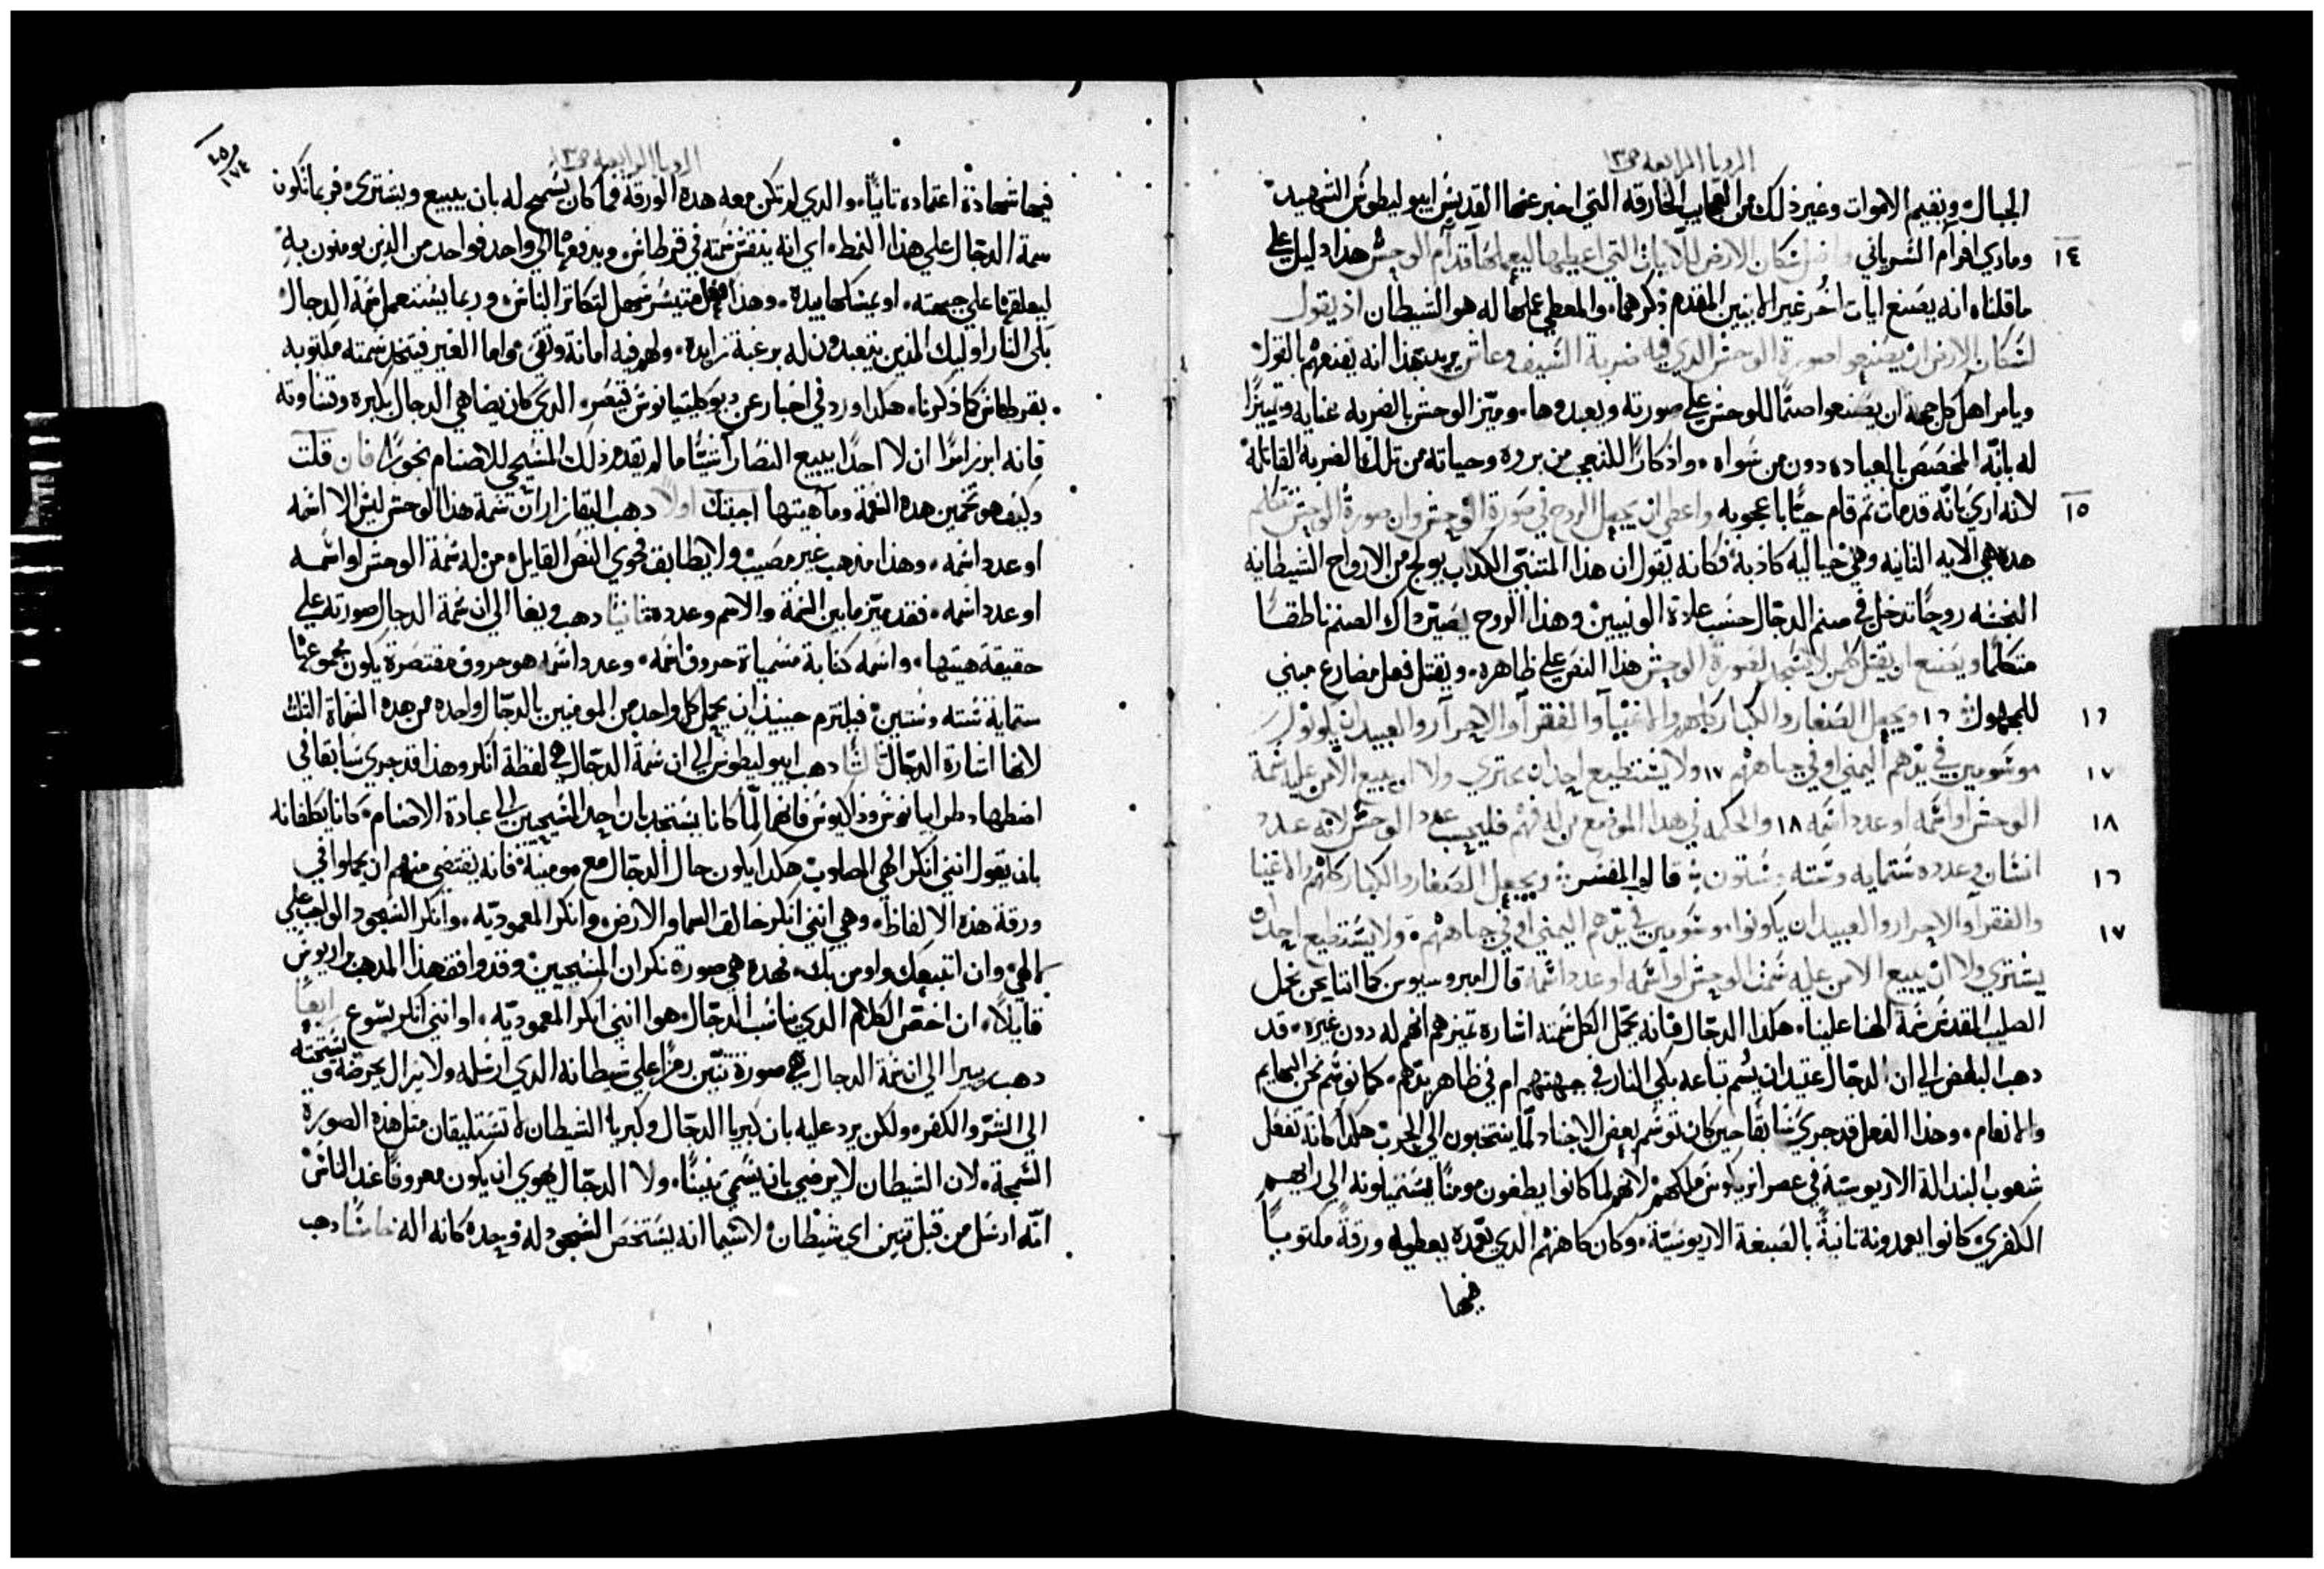 الرويا الرابعه ص١٣
الجبال ونقيم الاموات وغير ذلك من العجايب الخارقه التي اخبر عنها القديس ايبوليطوس الشهيد
١٤ وماري افرام السرياني واضل سكان الارض للآيات التي اعطيها ليعملها قدام الوحش هذا دليل علي
ما قلناه انه يصنع ايات اخر غير الاثنين المقدم ذكرهما والمعطي عملها له هو الشيطان اذ يقول
لسكان الارض ان يصنعوا صورة الوحش الدي فيه ضربة السيف وعاش يريد بهذا انه يقنعهم بالقول
ويامر اهل كل جهه ان يصنعوا صنمًا للوحش علي صورته ويعبدوها وميّز الوحش بالضربه عنايه وتمييزًا
له بانّه المخصص بالعباده دون من سواه واذكارًا للتعجب من بروه وحياته من تلك الضربه القاتله
١٥ لانه اري بانّه قد مات ثم قام حيًّا باعجوبه واعطي ان يجعل الروح في صورة الوحش وان صورة الوحش تتكلم
هده هي الايه الثانيه وهي خياليه كاذبه فكانه يقول ان هذا المتنبّي الكداب يولج من الارواح الشيطانيه
النجسه روحًا تدخل في صنم الدجّال حسب عادة الوثنيين وهذا الروح يصيّر داك الصنم ناطقًا
متكلمًا ويصنع ان يقتل كلمن لا يسجد لصورة الوحش هذا النص علي ظاهره ويقتل فعل مضارع مبني
١٦ للمجهول ١٦ ويجعل الصغار والكبار كلهم والاغنيآ والفقرآ والاحرآر والعبيد ان يكونوا
١٧ موسومين في يدهم اليمني او في جباههم ١٧ ولا يستطيع احد ان يشتري ولا ان يبيع الامن عليه سمة
١٨ الوحش او اسمه او عدد اسمه ١٨ والحكمه في هذا الموضع من له فهم فليحسب عدد الوحش لانه عدد
١٦ انسان وعدده ستمايه وسته وستون قال المفسر ويجعل الصغار والكبار كلهم والاغنيا
١٧ والفقرآ والاحرار والعبيد ان يكونوا موسومين في يدهم اليمني او في جباههم ولا يستطيع احد ان
يشتري ولا ان يبيع الامن عليه سمة الوحش او اسمه او عدد اسمه قال امبروسيوس كما اننا نحن نجعل
الصليب المقدس سمة الهنا علينا هكذا الدجّال فانه يجعل الكل سمته اشاره تميزهم انهم له دون غيره قد
دهب البعض الي ان الدجّال عتيد ان يسم تباعه بكي النار في جبهتهم ام في ظاهر يدهم كما نوسم نحن البهايم
والانعام وهذا الفعل قد جري سابقًا حين كان توسم بعض الاجناد لما ينتخبون الي الحرب هكدا كانت تفعل
شعوب البنداله الاريوسيّة في عصر انريكوس ملكهم لانهم لما كانوا يطغون مومنًا يستميلونه الي رايهم
الكفري كانوا يعمدونه ثانيةً بالصبغة الاريوسيّة وكان كاهنهم الدي يعمّده يعطيه ورقةً مكتوبًا
فيها
الرويا الرابعه ص١٣
فيها شهادة اعتماده ثانيًا والدي لم تكن معه هده الورقه فما كان يسمح له بان يبيع ويشتري فربما تكون
سمة الدجّال علي هذا النمط اي انه ينقش سمته في قرطاس ويدفعها الي واحد فواحد من الذين يومنون به
ليعلقها علي جبهته او يمسكها بيده وهذا الفعل متيسر سهل لتكاثر الناس وربما يستعمل سمة الدجال
بكي النار اوليك الذين يتعبدون له برغبة زايده ولهم فيه امانة وتقي واما الغير فيتخد سمته مكتوبه
بقرطاس كما ذكرنا هكدا ورد في اخبار عن ديوكليتيانوس قيصر الدي كان يضاهي الدجال بكبره وقساوته
فانه ابرز امرًا ان لا احدًا يبيع النصارا شيًّا ما لم يقدم ذلك المسيحي للاصنام بخورًا فان قلت
وكيف هو تخمين هده السمه وماهيتها اجبتك اولًا دهب اليقازار ان سمة هذا الوحش ليس الا اسمه
او عدد اسمه وهذا مذهب غير مصيب ولا يطابق فحوي النص القايل من له سمة الوحش او اسمه
او عدد اسمه فقد ميّز ما بين السمة والاسم وعدده ثانيًا دهب ويغا الي ان سمة الدجال صورته علي
حقيقة هيتها واسمه كتابة مسمياة حروف اسمه وعدد اسمه هو حروف مقتصرة يكون مجموعها
ستمايه سته وستين فيلتزم حينيذ ان يحمل كل واحد من المومنين بالدجّال واحده من هده السماة الثلث
لانها اشارة الدجّال ثالثًا دهب ايبوليطوس الي ان سمة الدجّال هي لفظة انكر وهذا قد جري سابقًا في
اضطهاد طرايانوس وداكيوس فانهما لمّا كانا يستجلبان احد المسيحيين الي عبادة الاصنام كانا يكلفانه
بان يقول انني انكر الهي المصلوب هكدا يكون حال الدجّال مع مومنيه فانه يقتضي منهم ان يحملوا في
ورقة هذه الالفاظ وهي انني انكر خالق السما والارض وانكر المعموديّه وانكر السجود الواجب علي
لالهي وان اتبعك واومن بك فهده هي صورة نكران المسيحيين وقد وافق هذا المدهب براريوس
قايلًا ان اخص الكلام الدي يناسب الدجّال هو انني انكر المعموديّه او انني انكر يسوع رابعًا
دهب بيرا الي ان سمة الدجال هي صورة تنّين رمزًا علي شيطانه الدي ارسله ولا يزال يحرضه ويستحثه
الي الشرّ والكفر ولكن يرد عليه بان كبريا الدجّال وكبريا الشيطان لا تستليقان مثل هذه الصورة
السمجة لان الشيطان لا يرضي بان يسمّي تنينًا ولا الدجّال يهوي ان يكون معروفًا عند الناس
انّه ارسل من قبل تنين اي شيطان لا سيما انه يستخص السجود له وحده كانه اله خامسًا دهب